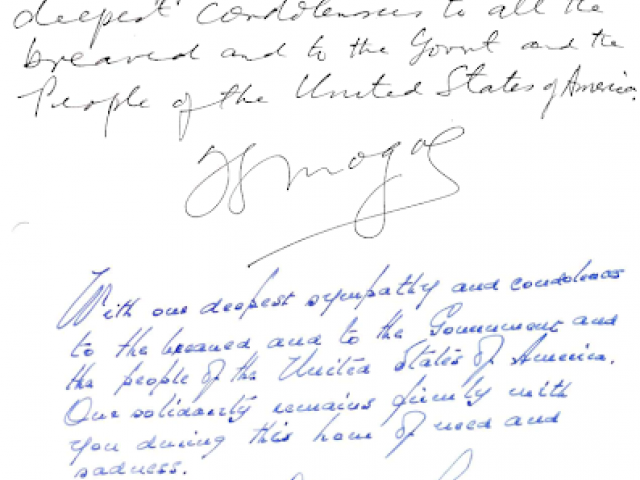 deepest condolences to all the
breaved and to the Govnt and the
People of the United States of America.
With our deepest sympathy and condolences
to the breaved and to the Government and
the people of the United States of America.
Our solidarity remains firmly with
you during this hour of need and
sadness.